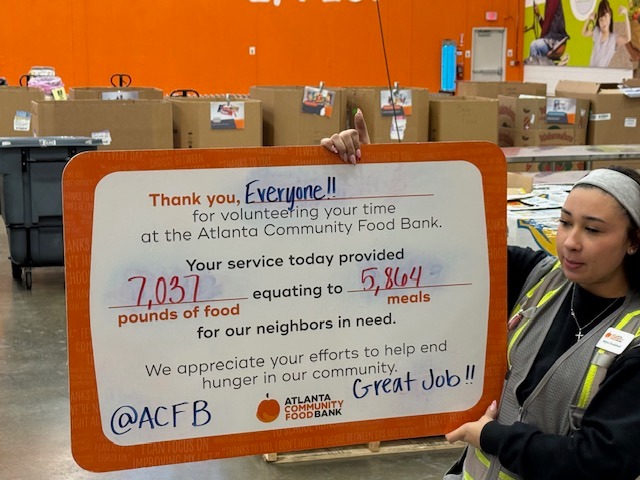 Thank you, Everyone!!
for volunteering your time
at the Atlanta Community Food Bank.
Your service today provided
7,037 equating to 5,864
pounds of food meals
for our neighbors in need.
We appreciate your efforts to help end
hunger in our community.
Great Job!!
@ACFB
ATLANTA
COMMUNITY
FOODBANK